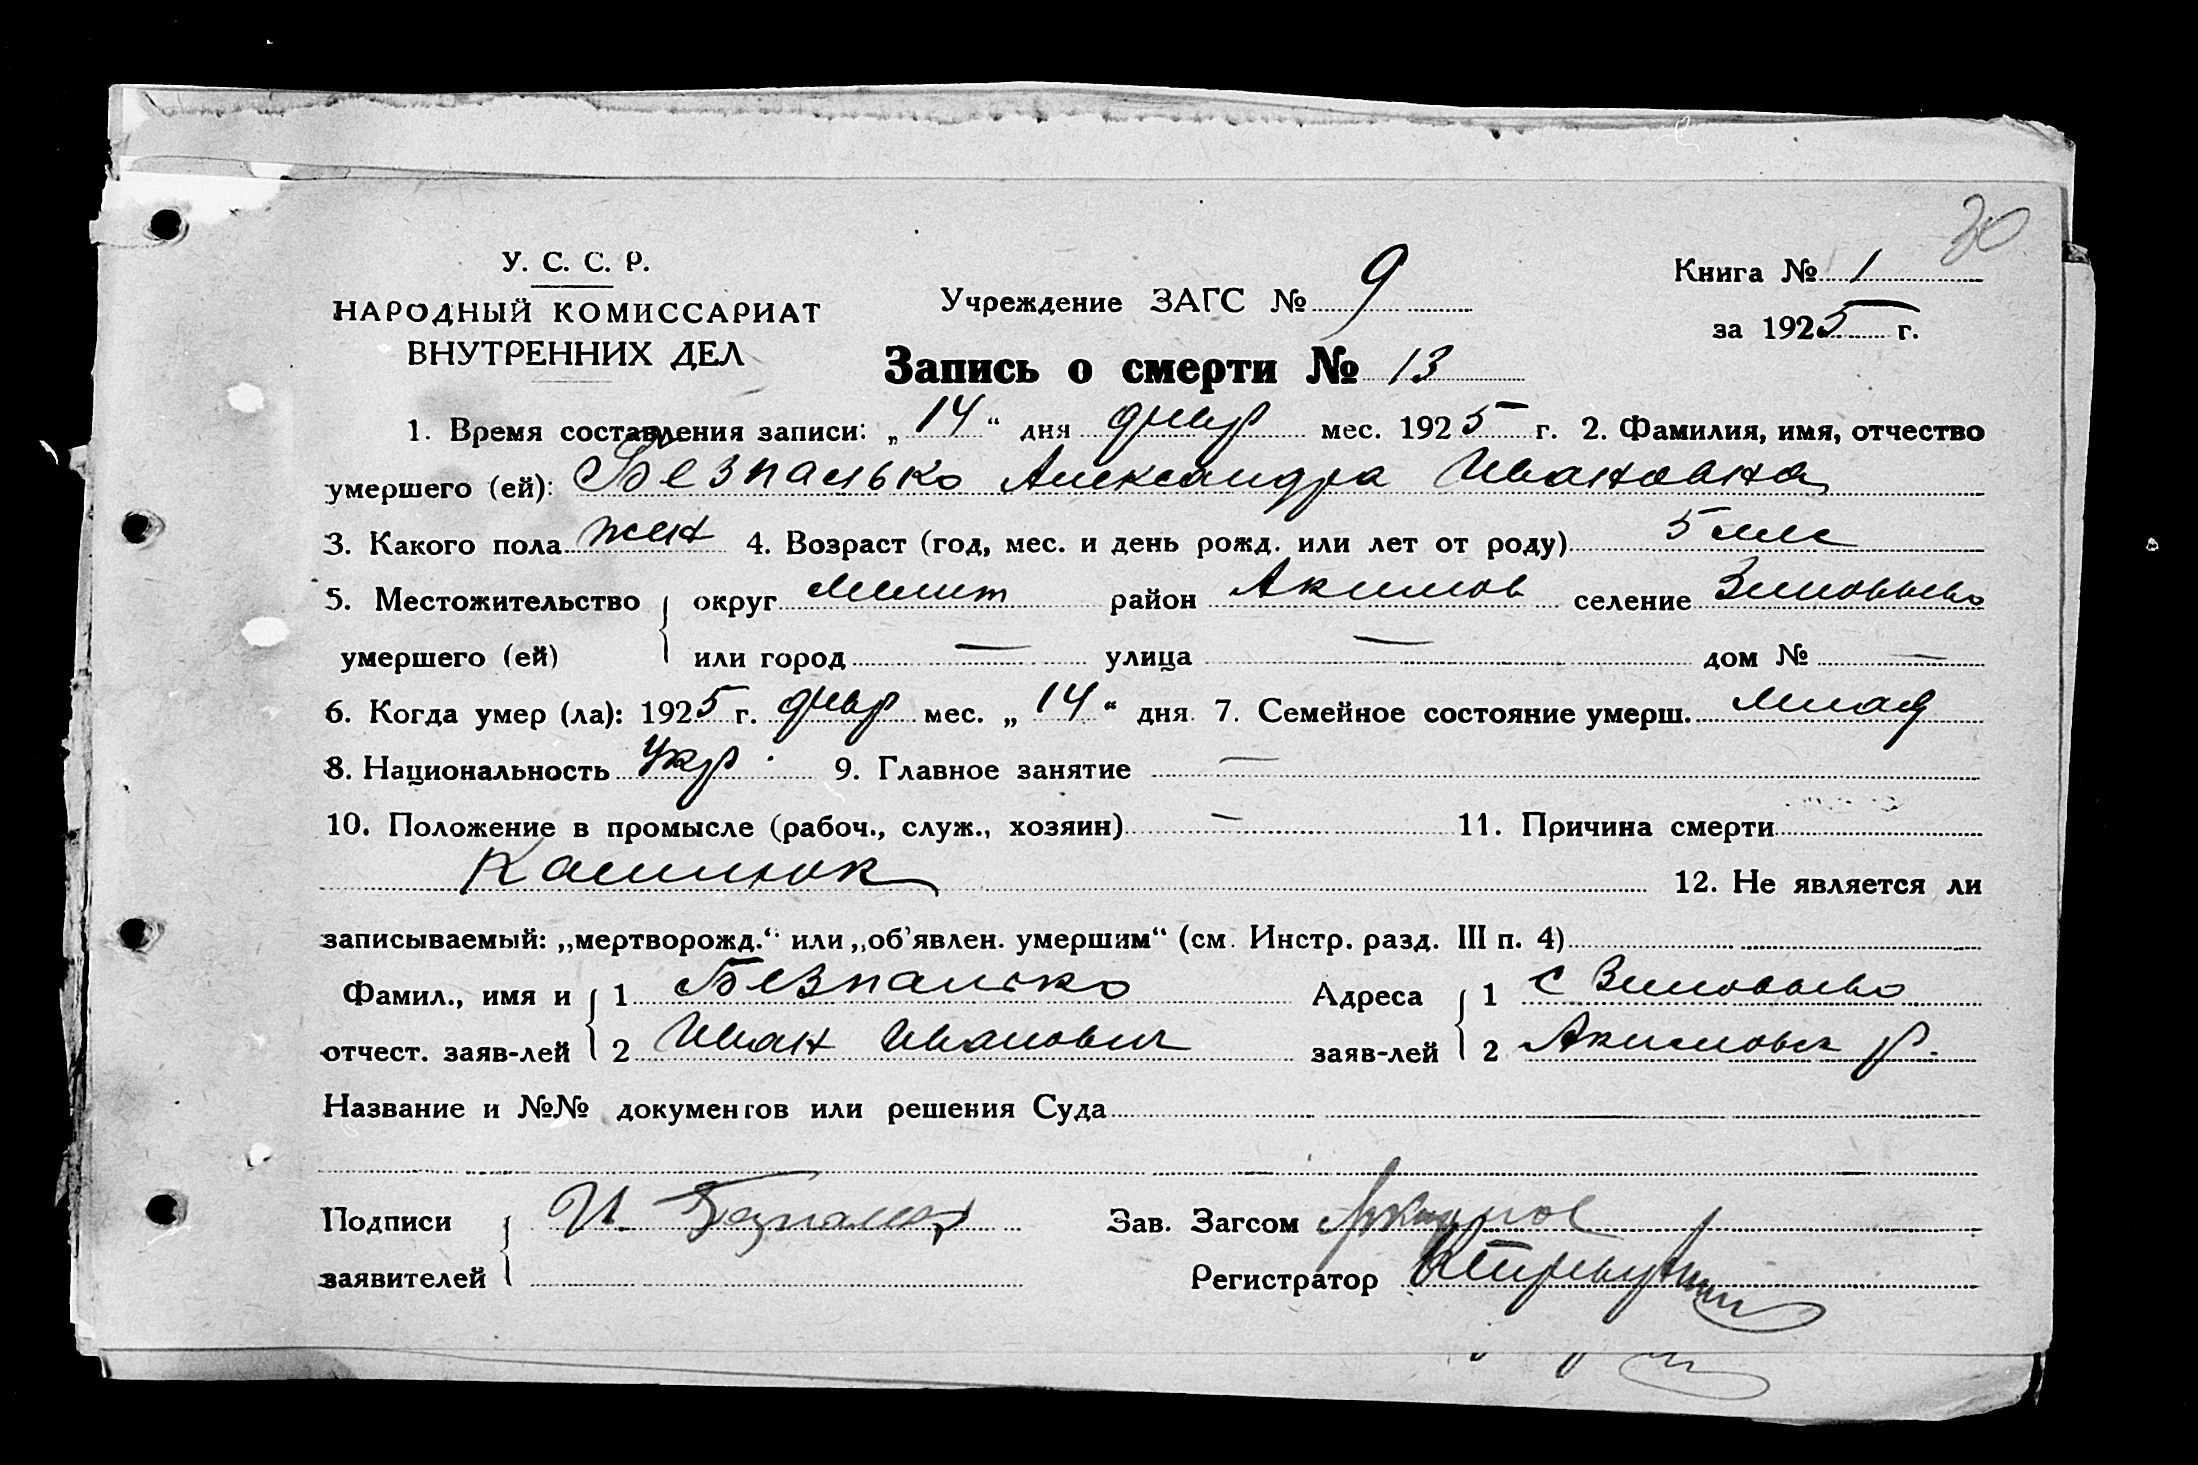 30
У. С. С. Р.
НАРОДНЫЙ КОМИССАРИАТ
ВНУТРЕННИХ ДЕЛ
Учреждение ЗАГС № 9
Книга № 1
за 1925 г.
Запись о смерти № 13
1. Время составления записи: „14“ дня янвр мес. 1925 г. 2. Фамилия, имя, отчество
умершего (ей): Безпалько Александра Ивановна
3. Какого пола жен 4. Возраст (год, мес. и день рожд. или лет от роду) 5
5. Местожительство округ Мелит район Акимов селение Зиновьево
умершего (ей) или город — улица — дом № —
6. Когда умер (ла): 1925 г. янвр мес. „14“ дня 7. Семейное состояние умерш. млад
8. Национальность Укр. 9. Главное занятие —
10. Положение в промысле (рабоч., служ., хозяин) — 11. Причина смерти
Кашлюк 12. Не является ли
записываемый: „мертворожд.“ или „об'явлен. умершим“ (см. Инстр. разд. III п. 4)
Фамил., имя и 1 Безпалько Адреса 1 с Зиновьево
отчест. заяв-лей 2 Иван Иванович заяв-лей 2 Акимовск р.
Название и №№ документов или решения Суда
Подписи И. Безпалько Зав. Загсом
заявителей Регистратор